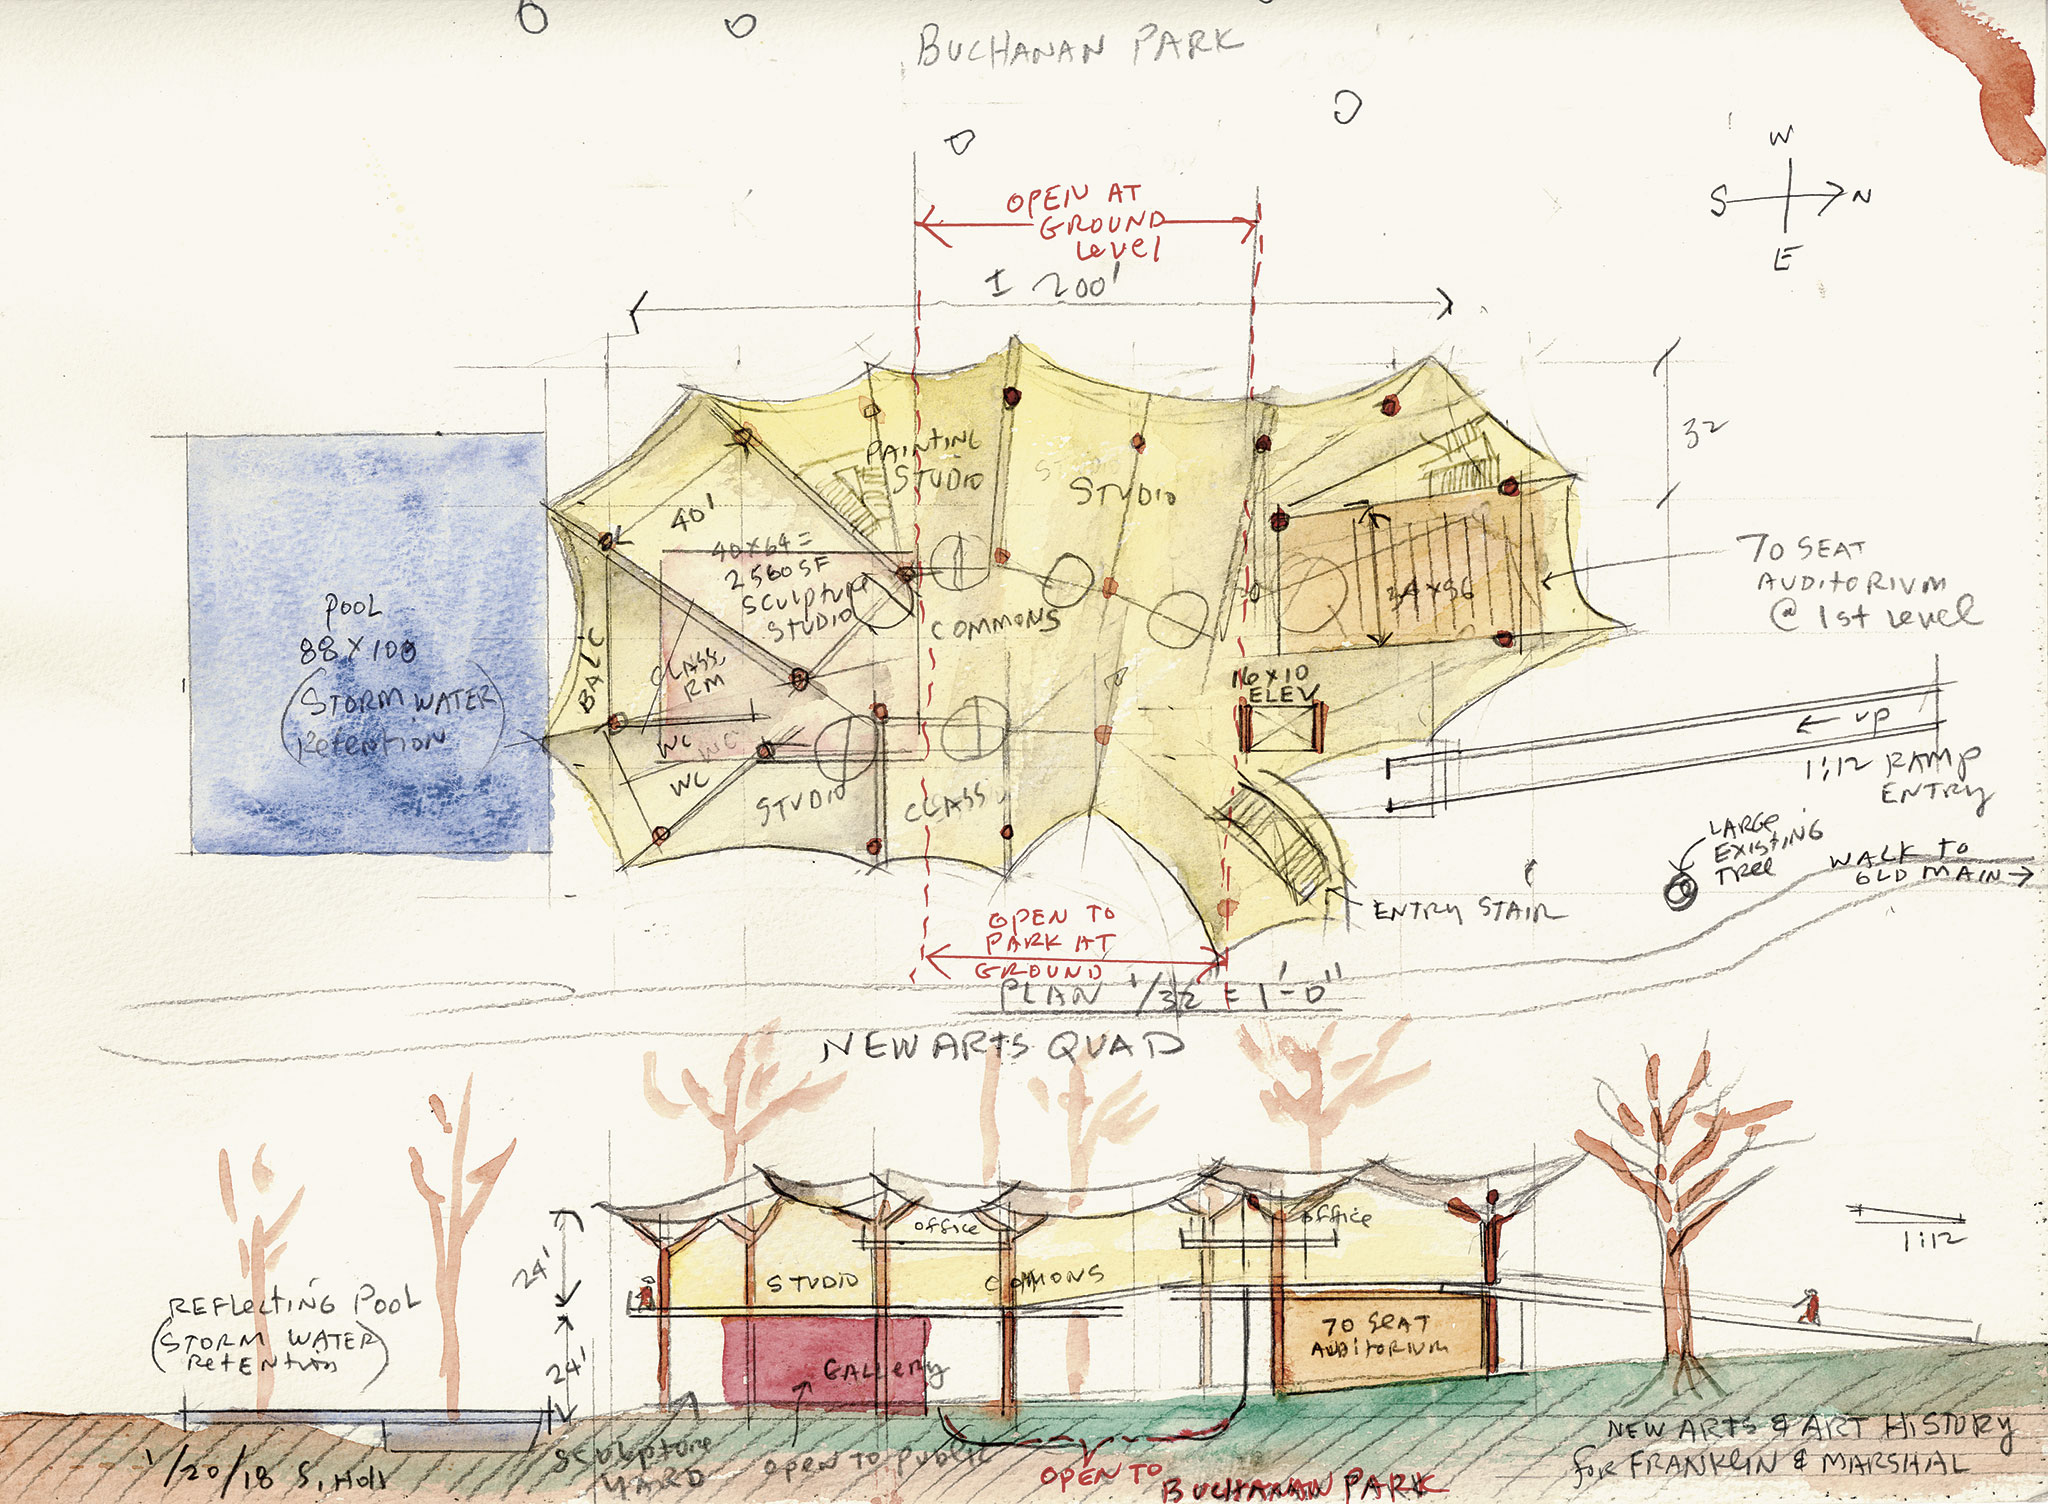 BUCHANAN PARK
W
S
N
E
OPEN AT
GROUND
level
± 200'
32
PAINTING
STUDIO
STUDIO
40'
40x64=
2560SF
Sculpture
STUDIO
70 SEAT
AUDITORIUM
@ 1st level
34x56
COMMONS
POOL
88x100
(STORM WATER
Retention)
BALC
CLASS
RM
16x10
ELEV
WC
WC
WC
STUDIO
CLASS
← UP
1:12 RAMP
ENTRY
LARGE
EXISTING
Tree
WALK TO
OLD MAIN →
ENTRY STAIR
OPEN TO
PARK AT
GROUND
PLAN 1/32 = 1'-0"
NEW ARTS QUAD
office
office
24'
STUDIO
COMMONS
1:12
REFLECTING POOL
(STORM WATER
Retention)
24'
GALLERY
70 Seat
AUDITORIUM
Sculpture
YARD
open to public
OPEN TO
BUCHANAN PARK
NEW ARTS & ART HISTORY
for FRANKLIN & MARSHAL
1/20/18 S. Holl